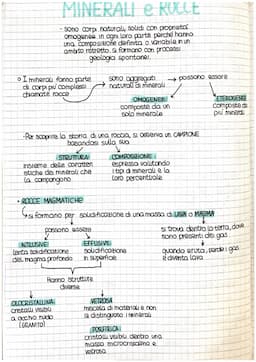 MINERALI e ROCCE
- sono corpi naturali, solidi con proprietà
omogenee in ogni loro parte perché hanno
una composizione definita o variabile in un
ambito ristretto. Si formano con processi
geologici spontanei.
• I minerali fanno parte
di corpi più complessi
chiamati rocce
sono aggregati
naturali di minerali
possono essere
OMOGENEE
composte da un
solo minerale
ETEROGENEE
composte da
più minerali
- Per scoprire la storia di una roccia, si osserva un CAMPIONE
basandosi sulla sua
STRUTTURA
insieme delle caratteri
stiche dei minerali che
la compongono
COMPOSIZIONE
espressa valutando
i tipi di minerali e la
loro percentuale
• ROCCE MAGMATICHE
si formano per solidificazione di una massa di LAVA o MAGMA
possono essere
INTRUSIVE
lenta solidificazione
del magma profondo
EFFUSIVE
solidificazione
in superficie
si trova dentro la terra, dove
sono presenti dei gas
quando erutta, perde i gas
e diventa lava
Hanno strutture
diverse
OLOCRISTALLINA
cristalli visibili
a occhio nudo
(GRANITO)
VETROSA
miscela di materiali e non
si distinguono i minerali
PORFIRICA
cristalli visibili dentro una
massa microcristallina e
vetrosa